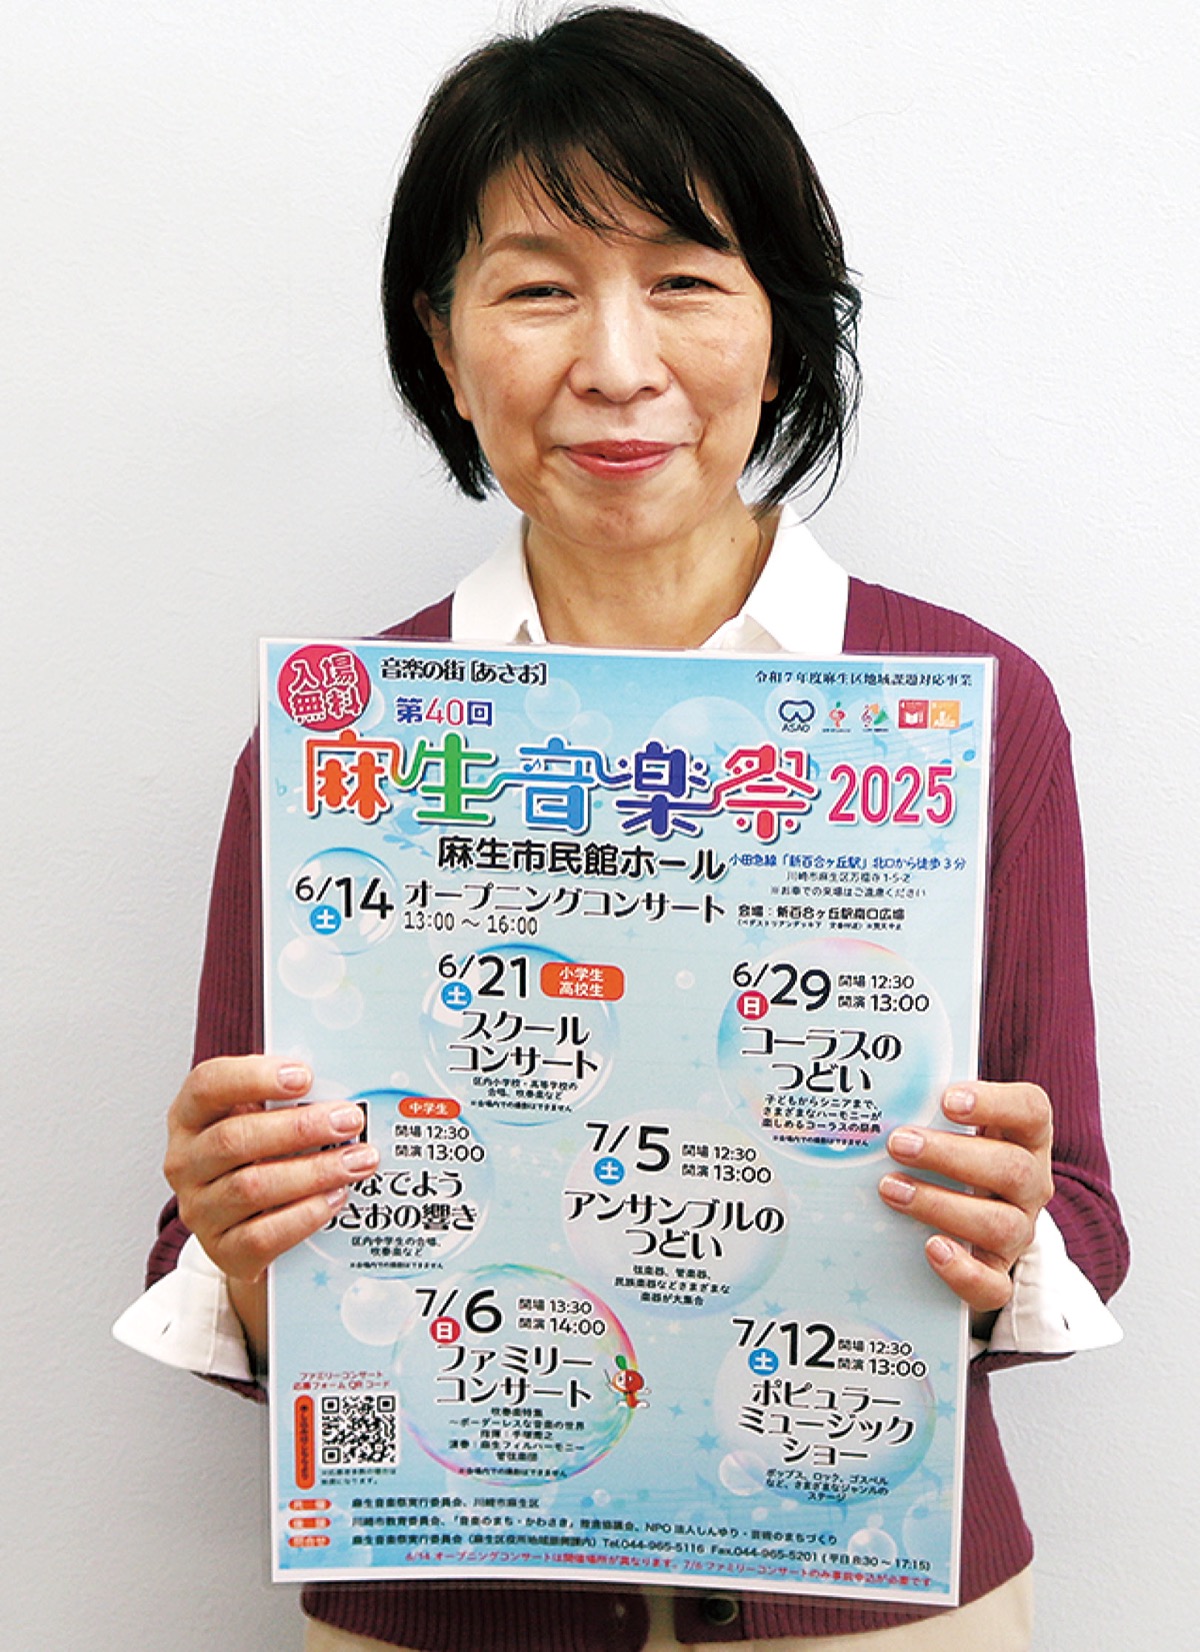 入場
無料
音楽の街[あさお]
令和7年度麻生区地域課題対応事業
第40回
ASAO
麻生音楽祭2025
麻生市民館ホール
小田急線「新百合ヶ丘駅」北口から徒歩3分
川崎市麻生区万福寺1-5-2
※お車での来場はご遠慮ください
6/14
土
オープニングコンサート
13:00 〜 16:00
会場：新百合ヶ丘駅南口広場
6/21
土
小学生
高校生
スクール
コンサート
区内小学校・高等学校の
合唱、吹奏楽など
※会場内での撮影はできません
6/29
日
開場 12:30
開演 13:00
コーラスの
つどい
子どもからシニアまで、
さまざまなハーモニーが
楽しめるコーラスの祭典
※会場内での撮影はできません
中学生
開場 12:30
開演 13:00
なでよう
さおの響き
区内中学生の合唱、
吹奏楽など
※会場内での撮影はできません
7/5
土
開場 12:30
開演 13:00
アンサンブルの
つどい
弦楽器、管楽器、
民族楽器などさまざまな
楽器が大集合
7/6
日
開場 13:30
開演 14:00
ファミリー
コンサート
吹奏楽特集
〜ボーダーレスな音楽の世界
演奏：麻生フィルハーモニー
管弦楽団
※会場内での撮影はできません
7/12
土
開場 12:30
開演 13:00
ポピュラー
ミュージック
ショー
ポップス、ロック、ゴスペル
など、さまざまなジャンルの
ステージ
ファミリーコンサート
応募フォームQRコード
共催 麻生音楽祭実行委員会、川崎市麻生区
後援 川崎市教育委員会、「音楽のまち・かわさき」推進協議会、NPO法人しんゆり・芸術のまちづくり
問合せ 麻生音楽祭実行委員会（麻生区役所地域振興課内）Tel.044-965-5116 Fax.044-965-5201（平日8:30〜17:15）
6/14 オープニングコンサートは開催場所が異なります。7/6 ファミリーコンサートのみ事前申込が必要です